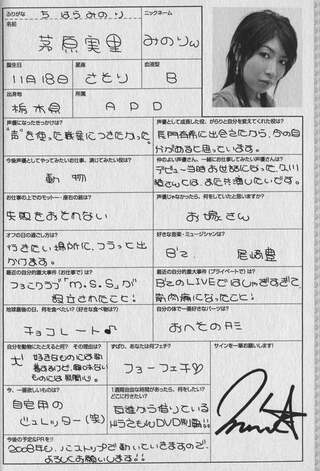 ふりがな ちはらみのり
ニックネーム
名前 茅原実里
みのりん
誕生日 星座 血液型
11月18日 さそり B
出身地 所属
栃木県 APD
声優になったきっかけは?
"声"を使った職業につきたかった。
声優として成長した役、がらりと自分を変えてくれた役は?
長門有希に出会えたから、今の自分があると思っています。
今後声優としてやってみたいお仕事、演じてみたい役は?
動物
仲のよい声優さん、一緒にお仕事してみたい声優さんは?
デビュー当時お世話になった、久川綾さんとは、また共演したいです。
お仕事の上でのモットー・座右の銘は?
失敗をおそれない
声優じゃなかったら、何をしていたと思いますか?
お嫁さん
オフの日の過ごし方は?
行きたい場所に、フラっと出かけます。
好きな音楽・ミュージシャンは?
B'z、尾崎豊
最近の自分的重大事件(お仕事で)は?
ファンクラブ「M.S.S.」が設立されたこと!
最近の自分的重大事件(プライベートで)は?
B'zのLIVEではしゃぎすぎて、筋肉痛になったこと!
地球最後の日、何を食べたい?(好きな食べ物は?)
チョコレート♪
自分の体で一番好きなパーツは?
おへその
自分を動物にたとえると何? その理由は?
犬
好きなものには
ものには無関心。
ずばり、あなたは何フェチ?
フォーフェチ♡
サインを一筆お願いします!
今、一番欲しいものは?
自宅用の
(笑)
1週間自由な時間があったら、何をしたい? どこに行きたい?
友達から借りている
DVD
今後の予定&PRを!!
2008年も、
で動いていきますので、
よろしくお願いします!!